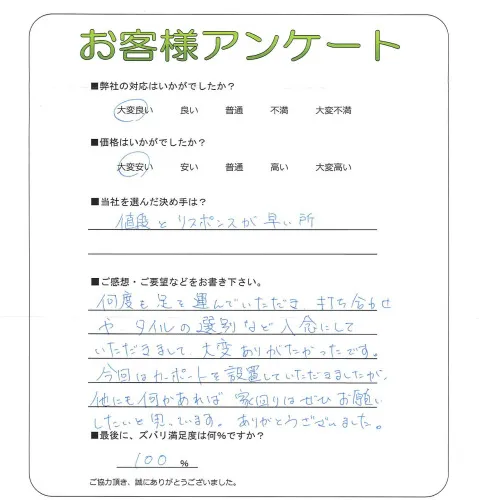 お客様アンケート
■弊社の対応はいかがでしたか？
大変良い 良い 普通 不満 大変不満
■価格はいかがでしたか？
大変安い 安い 普通 高い 大変高い
■当社を選んだ決め手は？
値段とリスポンスが早い所
■ご感想・ご要望などをお書き下さい。
何度も足を運んでいただき 打ち合わせ
や タイルの選別など入念にして
いただきまして、大変ありがたかったです。
今回はカーポートを設置していただきましたが、
他にも何かあれば 家回りはぜひお願い
したいと思っています。ありがとうございました。
■最後に、ズバリ満足度は何%ですか？
100 %
ご協力頂き、誠にありがとうございました。